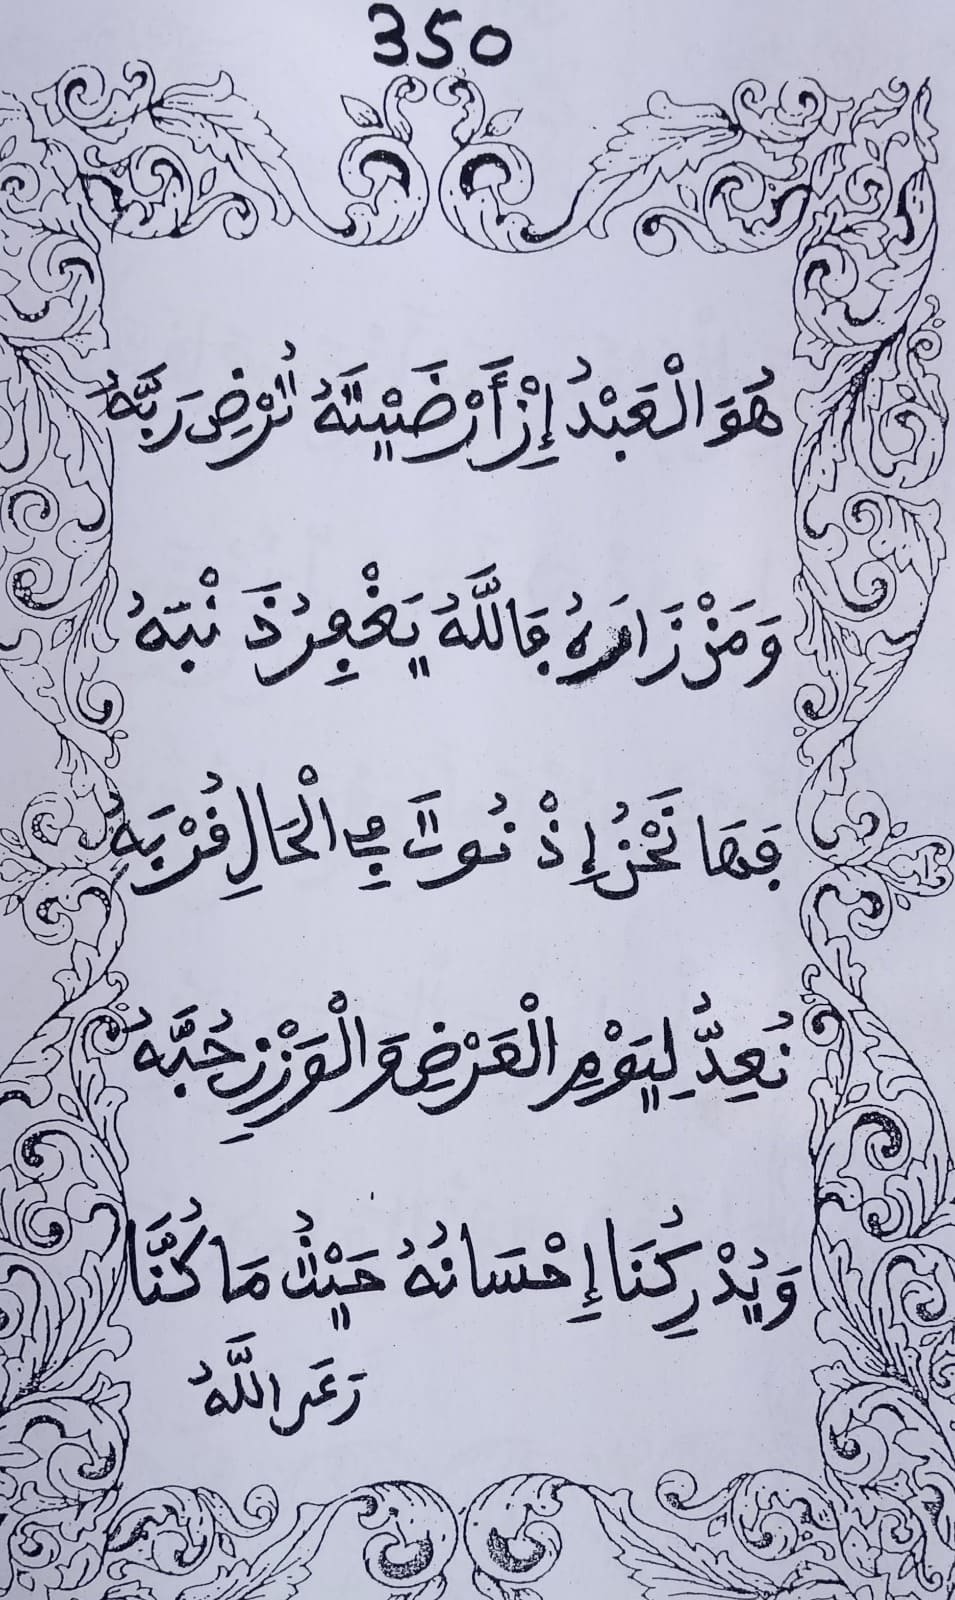 350
هُوَ الْعَبْدُ إِنْ أَرْضَيْتَهُ تُرْضِ رَبَّهُ
وَمَنْ زَارَهُ فَاللَّهُ يَغْفِرُ ذَنْبَهُ
فَهَا نَحْنُ إِذْ فِي الْحَالِ قُرْبَهُ
نُعِدُّ لِيَوْمِ الْعَرْضِ وَالْوَزْنِ حُبَّهُ
وَيُدْرِكُنَا إِحْسَانُهُ حَيْثُ مَا كُنَّا
رَعَى اللَّهُ